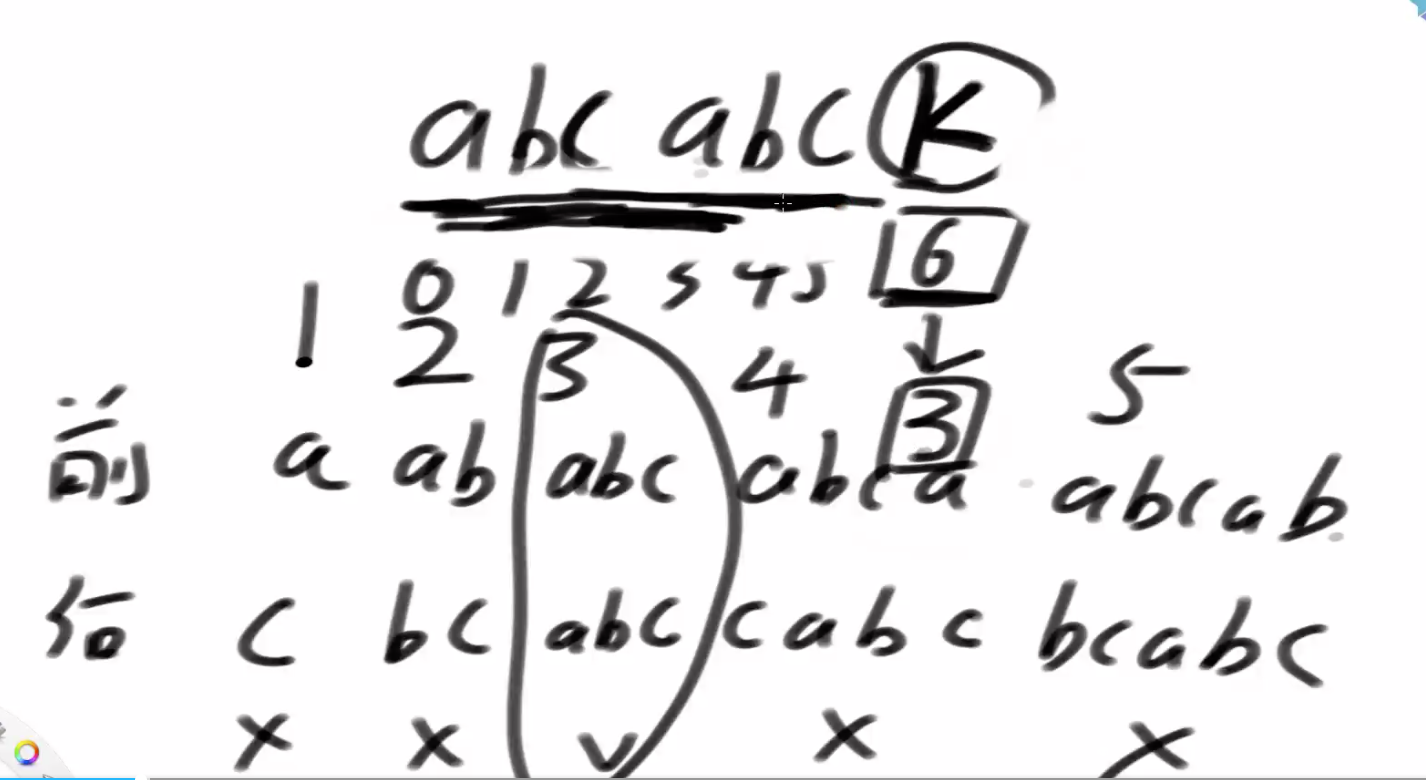 abc abc k
0 1 2 3 4 5 6
1 2 3 4 3 5
前 a ab abc abca abcab
后 c bc abc cabc bcabc
x x v x x